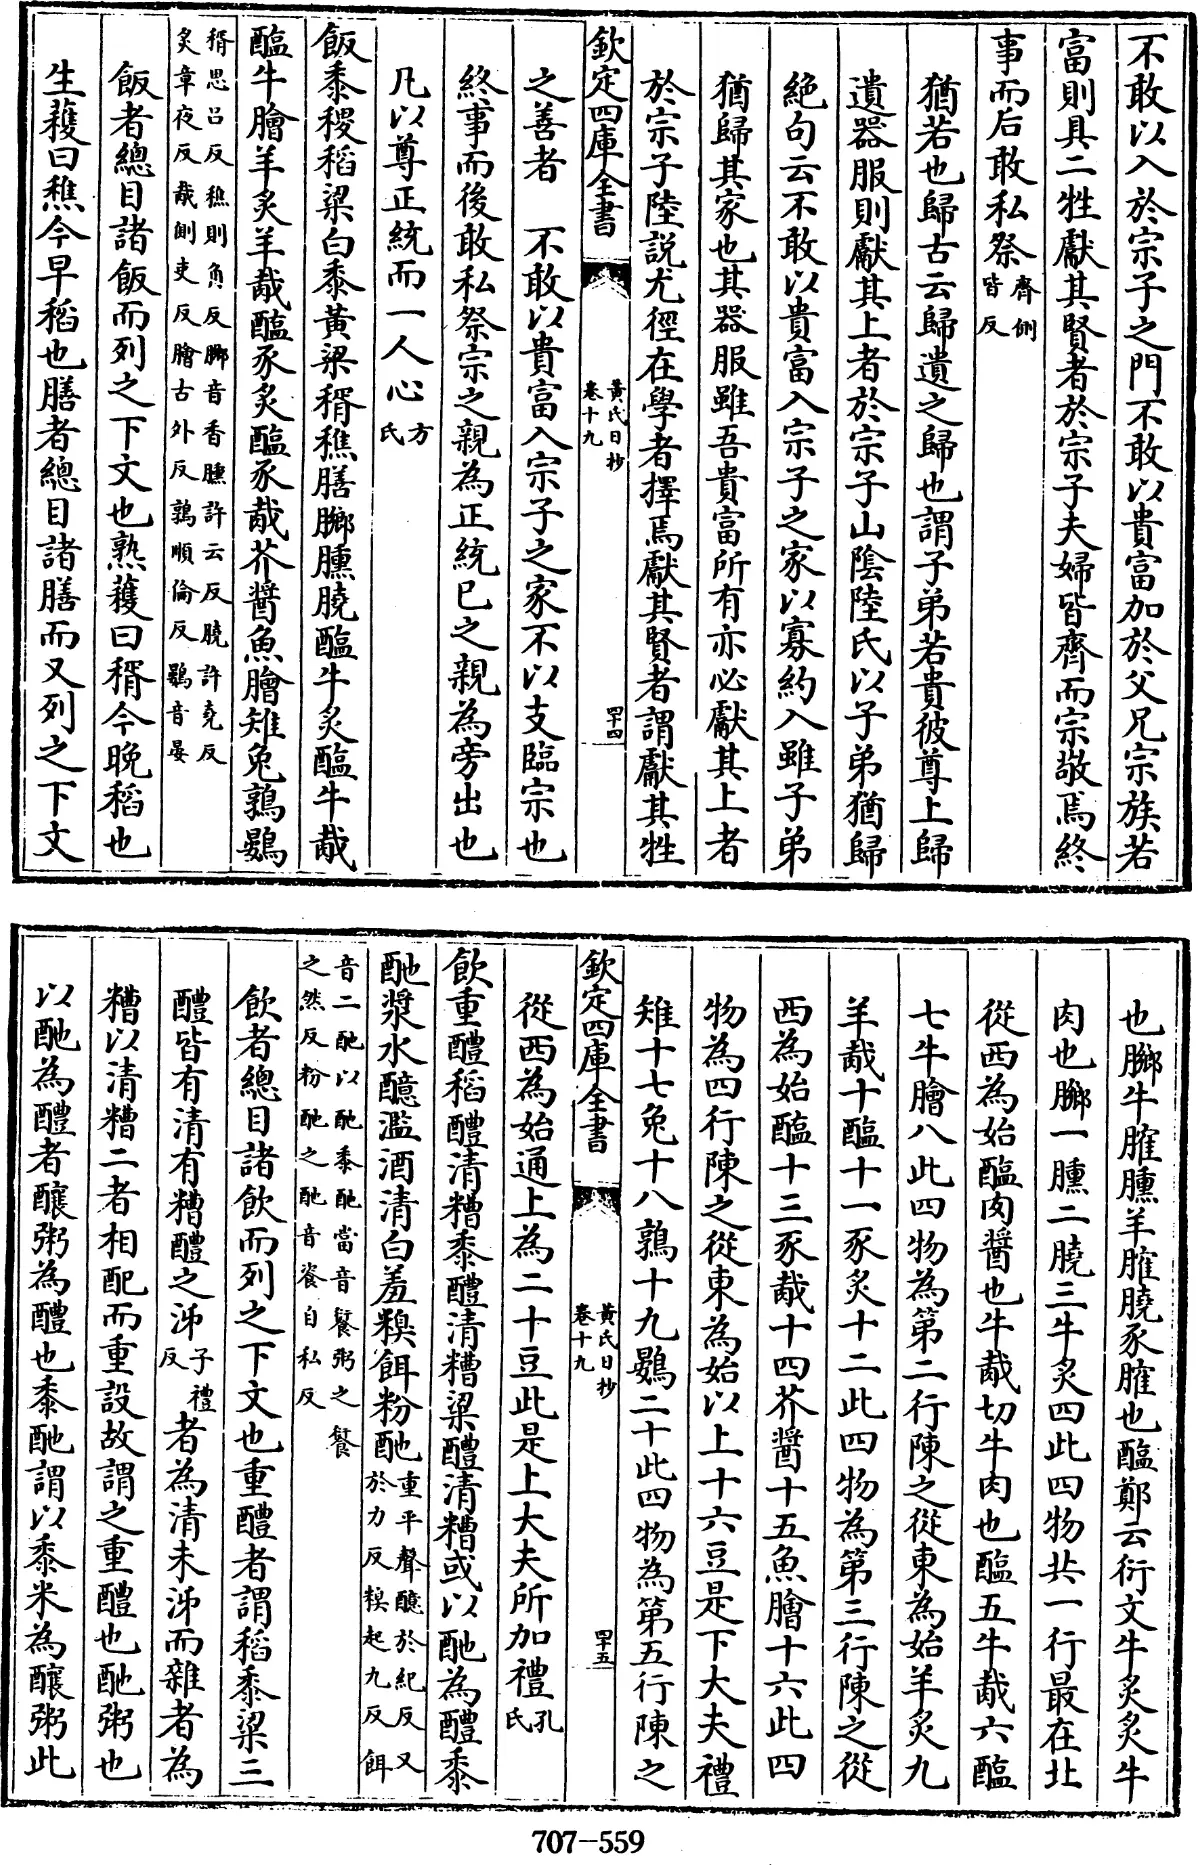 不敢以入於宗子之門不敢以貴富加於父兄宗族若
富則具二牲獻其賢者於宗子夫婦皆齊而宗敬焉終
事而后敢私祭齊側皆反
猶若也歸古云歸遺之歸也謂子弟若貴彼尊上歸
遺器服則獻其上者於宗子山陰陸氏以子弟猶歸
絶句云不敢以貴富入宗子之家以寡約入雖子弟
猶歸其家也其器服雖吾貴富所有亦必獻其上者
於宗子陸説尤徑在學者擇焉獻其賢者謂獻其牲
欽定四庫全書
黃氏日抄
卷十九
四十四
之善者　不敢以貴富入宗子之家不以支臨宗也
終事而後敢私祭宗之親為正統已之親為旁出也
凡以尊正統而一人心方氏
飯黍稷稻粱白黍黃粱稰穛膳膷臐膮醢牛炙醢牛胾
醢牛膾羊炙羊胾醢豕炙醢豕胾芥醬魚膾雉兔鶉鷃
稰思呂反穛則角反膷音香臐許云反膮許堯反
炙章夜反胾側吏反膾古外反鶉順倫反鷃音晏
飯者總目諸飯而列之下文也熟穫曰稰今晚稻也
生穫曰穛今早稻也膳者總目諸膳而又列之下文
也膷牛臛臐羊臛膮豕臛也醢鄭云衍文牛炙炙牛
肉也膷一臐二膮三牛炙四此四物共一行最在北
從西為始醢肉醬也牛胾切牛肉也醢五牛胾六醢
七牛膾八此四物為第二行陳之從東為始羊炙九
羊胾十醢十一豕炙十二此四物為第三行陳之從
西為始醢十三豕胾十四芥醬十五魚膾十六此四
物為四行陳之從東為始以上十六豆是下大夫禮
雉十七兔十八鶉十九鷃二十此四物為第五行陳之
欽定四庫全書
黃氏日抄
卷十九
四十五
從西為始通上為二十豆此是上大夫所加禮孔氏
飲重醴稻醴清糟黍醴清糟粱醴清糟或以酏為醴黍
酏漿水醷濫酒清白羞糗餌粉酏重平聲醷於紀反又於力反糗起九反餌
音二酏以酏黍酏當音餐粥之餐
之然反粉酏之酏音餈自私反
飲者總目諸飲而列之下文也重醴者謂稻黍粱三
醴皆有清有糟醴之泲子禮反者為清未泲而雜者為
糟以清糟二者相配而重設故謂之重醴也酏粥也
以酏為醴者釀粥為醴也黍酏謂以黍米為釀粥此
707-559